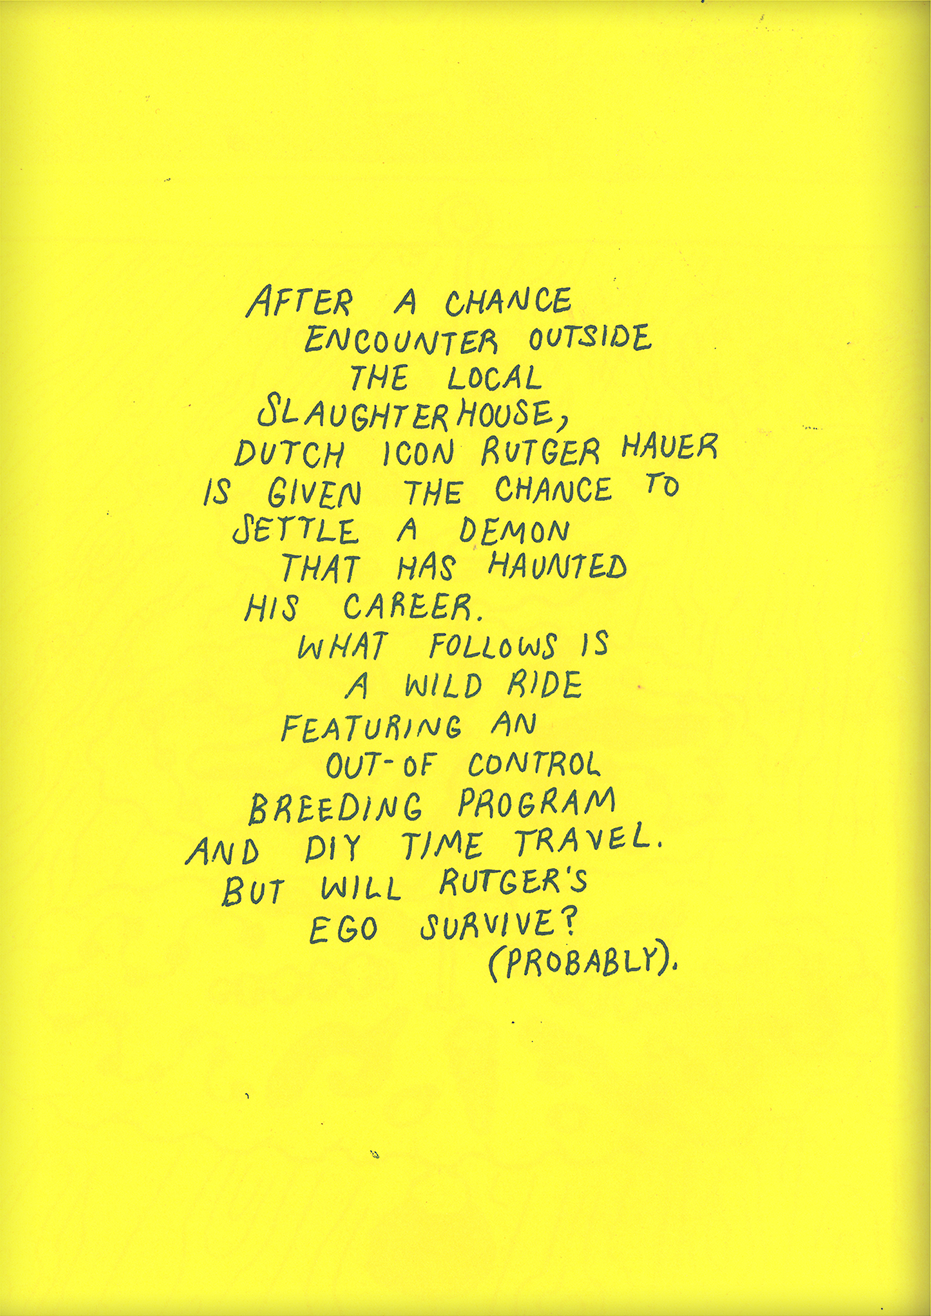 AFTER A CHANCE
ENCOUNTER OUTSIDE
THE LOCAL
SLAUGHTERHOUSE,
DUTCH ICON RUTGER HAUER
IS GIVEN THE CHANCE TO
SETTLE A DEMON
THAT HAS HAUNTED
HIS CAREER.
WHAT FOLLOWS IS
A WILD RIDE
FEATURING AN
OUT-OF CONTROL
BREEDING PROGRAM
AND DIY TIME TRAVEL.
BUT WILL RUTGER'S
EGO SURVIVE?
(PROBABLY).